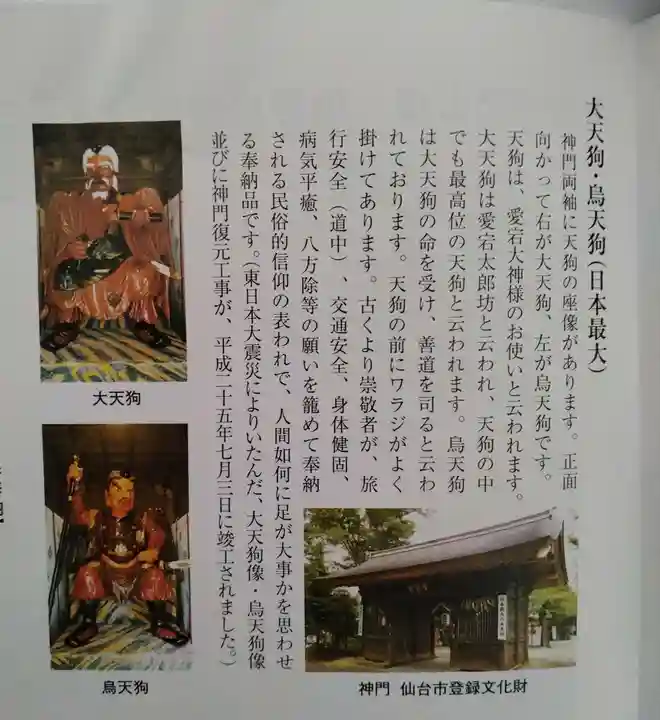 大天狗・烏天狗(日本最大)
神門両袖に天狗の座像があります。正面
向かって右が大天狗、左が烏天狗です。
天狗は、愛宕大神様のお使いと云われます。
大天狗は愛宕太郎坊と云われ、天狗の中
でも最高位の天狗と云われます。烏天狗
は大天狗の命を受け、善道を司ると云わ
れております。天狗の前にワラジがよく
掛けてあります。古くより崇敬者が、旅
行安全（道中）、交通安全、身体健固、
病気平癒、八方除等の願いを籠めて奉納
される民俗的信仰の表われで、人間如何に足が大事かを思わせ
る奉納品です。(東日本大震災によりいたんだ、大天狗像・烏天狗像
並びに神門復元工事が、平成二十五年七月三日に竣工されました。)
大天狗
烏天狗
神門 仙台市登録文化財